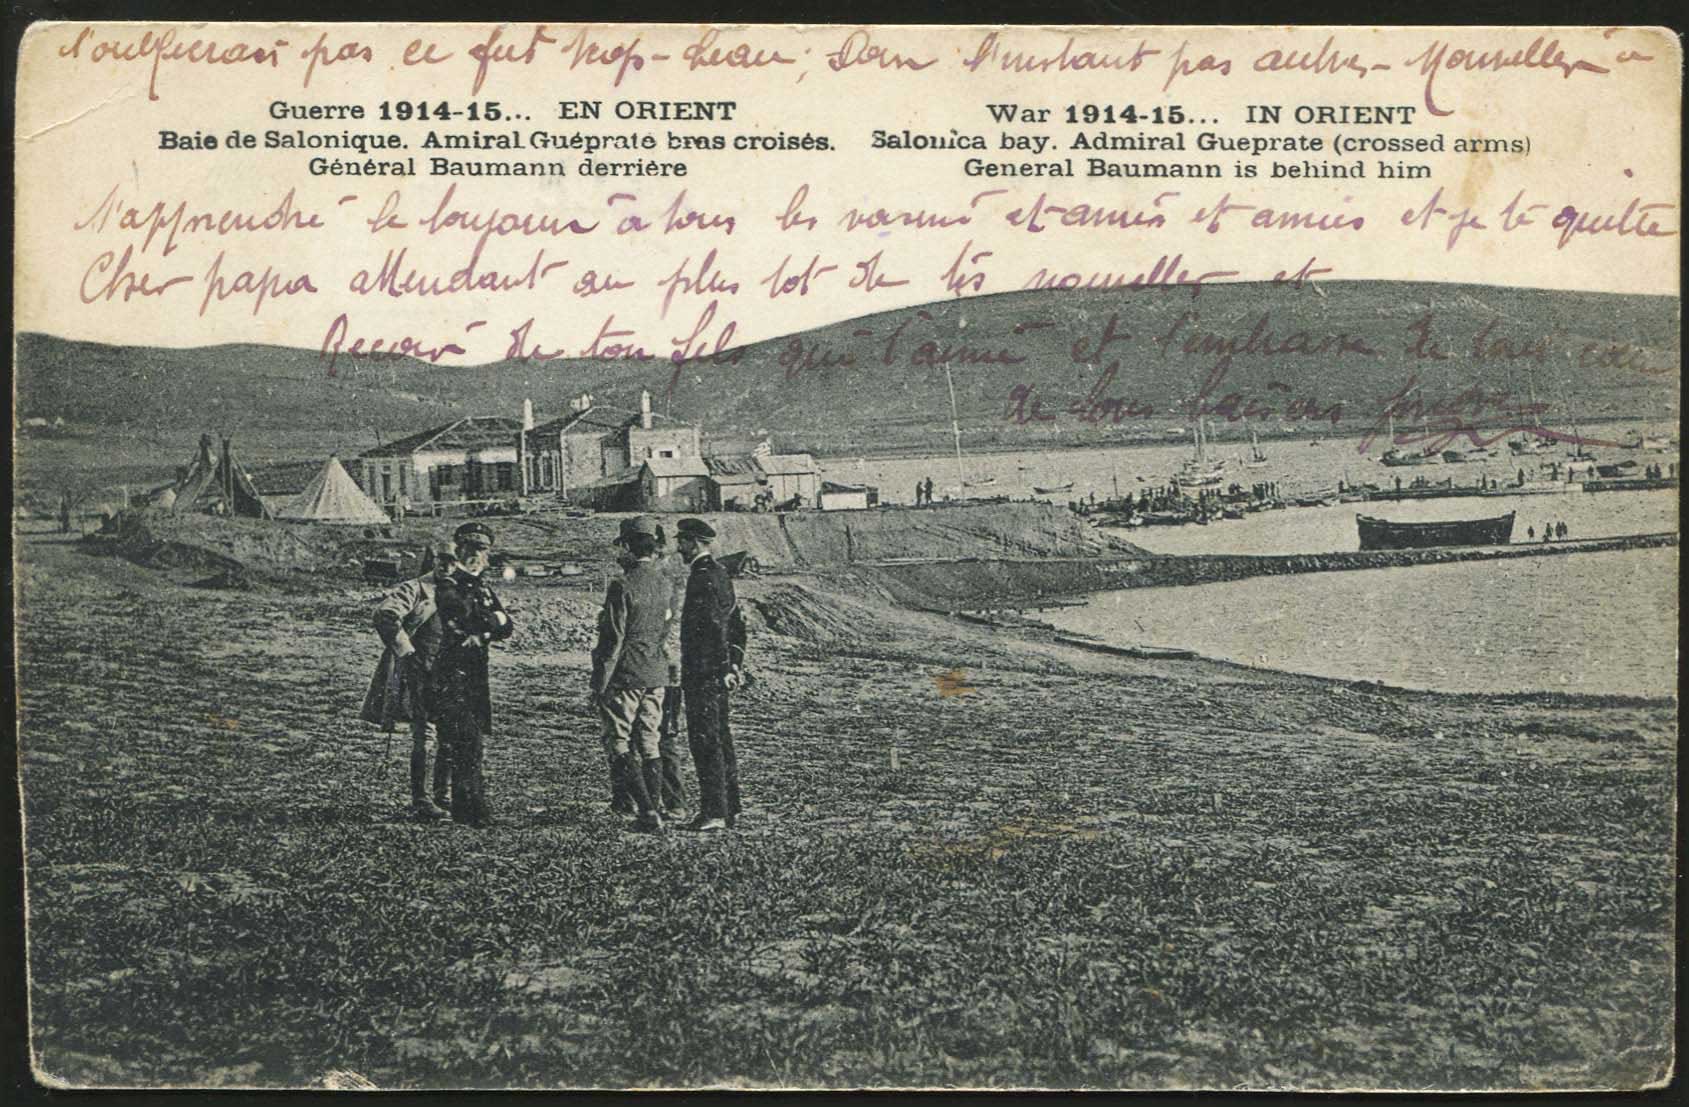 n'oublierai pas ce fut trop-beau; Dans l'instant pas autres- Nouvelles a
Guerre 1914-15... EN ORIENT
Baie de Salonique. Amiral Guéprate bras croisés.
Général Baumann derrière
War 1914-15... IN ORIENT
Salonica bay. Admiral Gueprate (crossed arms)
General Baumann is behind him
le toujour a tous les et amis et amies et je te quitte
Cher papa attendant au plus tot de tes nouvelles et
de ton fils qui t'aime et t'embrasse de tout coeur
de tous